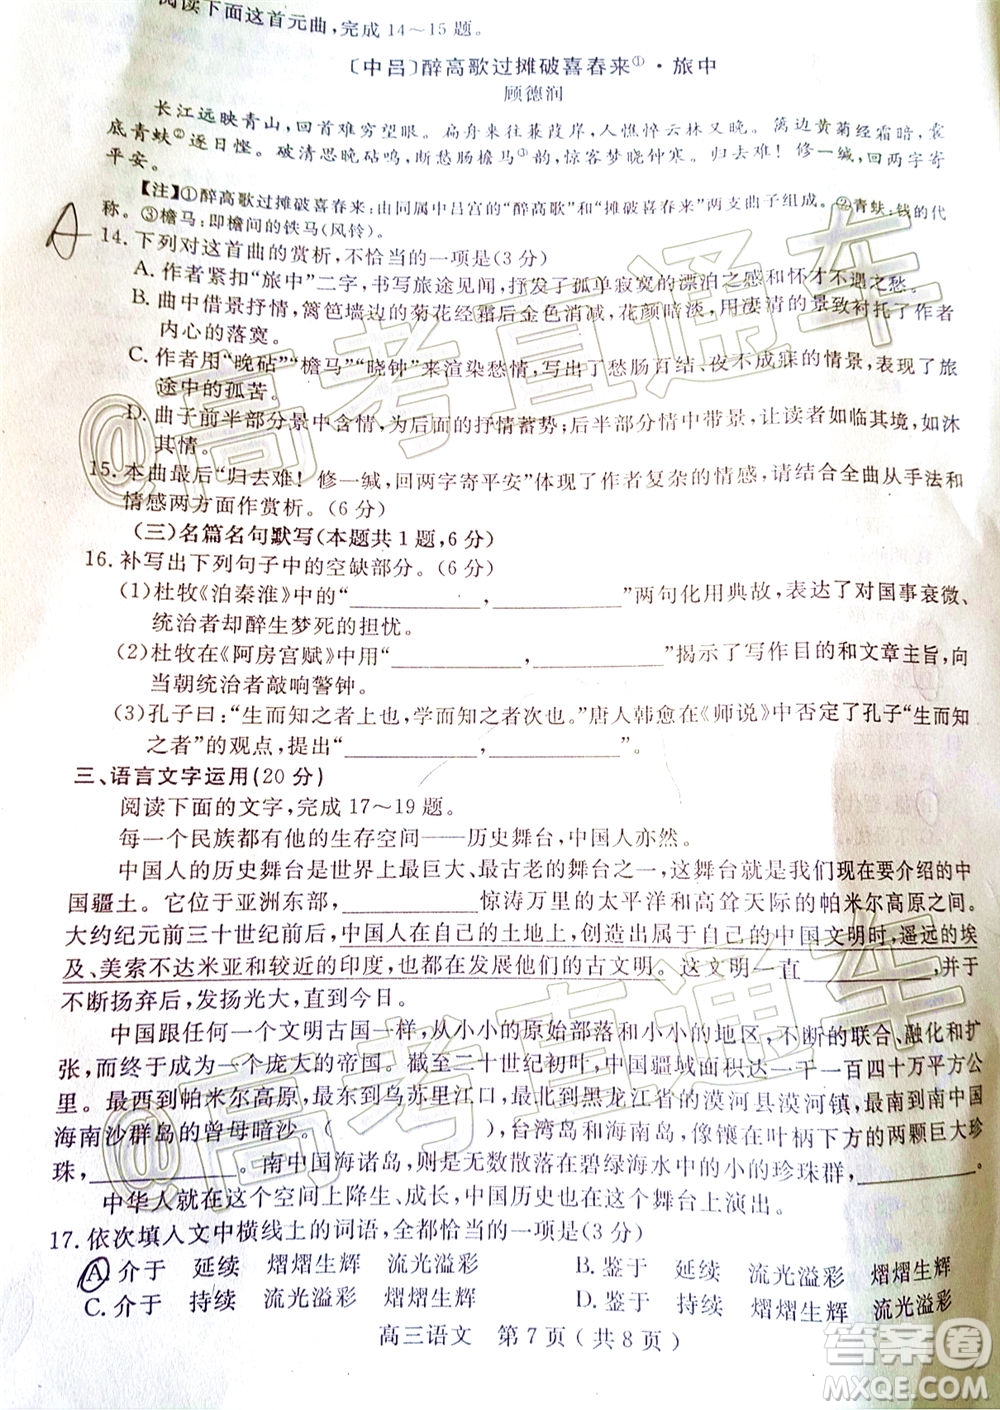 阅读下面这首元曲,完成14～15题。
〔中吕〕醉高歌过摊破喜春来①·旅中
顾德润
长江远映青山,回首难穷望眼。扁舟来往蒹葭岸,人憔悴云林又晚。 篱边黄菊经霜暗,囊
底青蚨②逐日悭。破清思晚砧鸣,断愁肠檐马③韵,惊客梦晓钟寒。归去难!修一缄,回两字寄
平安。
【注】①醉高歌过摊破喜春来:由同属中吕宫的“醉高歌”和“摊破喜春来”两支曲子组成。②青蚨:钱的代
称。③檐马:即檐间的铁马(风铃)。
A
14. 下列对这首曲的赏析,不恰当的一项是(3分)
A. 作者紧扣“旅中”二字,书写旅途见闻,抒发了孤单寂寞的漂泊之感和怀才不遇之愁。
B. 曲中借景抒情,篱笆墙边的菊花经霜后金色消减,花颜暗淡,用凄清的景致衬托了作者
内心的落寞。
C. 作者用“晚砧”“檐马”“晓钟”来渲染愁情,写出了愁肠百结、夜不成寐的情景,表现了在旅
途中的孤苦。
D. 曲子前半部分景中含情,为下面的抒情蓄势;后半部分情中带景,让读者如临其景,如沐
其情。
15. 本曲最后“归去难!修一缄,回两字寄平安”体现了作者复杂的情感,请结合全曲从手法和
情感两方面作赏析。(6分)
(三)名篇名句默写(本题共1题,6分)
16. 补写出下列句子中的空缺部分。(6分)
(1)杜牧《泊秦淮》中的“__________,__________”两句化用典故,表达了对国事衰微、
统治者却醉生梦死的担忧。
(2)杜牧在《阿房宫赋》中用“__________,__________”揭示了写作目的和文章主旨,向
当朝统治者敲响警钟。
(3)孔子曰:“生而知之者上也,学而知之者次也。”唐人韩愈在《师说》中否定了孔子“生而知
之者”的观点,提出“__________,__________”。
三、语言文字运用(20分)
阅读下面的文字,完成17～19题。
每一个民族都有他的生存空间——历史舞台,中国人亦然。
中国人的历史舞台是世界上最巨大、最古老的舞台之一,这舞台就是我们现在要介绍的中
国疆土。它位于亚洲东部,__________惊涛万里的太平洋和高耸天际的帕米尔高原之间。
大约纪元前三十世纪前后,中国人在自己的土地上,创造出属于自己的中国文明时,遥远的埃
及、美索不达米亚和较近的印度,也都在发展他们的古文明。这文明一直__________,并于
不断扬弃后,发扬光大,直到今日。
中国跟任何一个文明古国一样,从小小的原始部落和小小的地区,不断的联合、融化和扩
张,而终于成为一个庞大的帝国。截至二十世纪初叶,中国疆域面积达一千一百四十万平方公
里。最西到帕米尔高原,最东到乌苏里江口,最北到黑龙江省的漠河县漠河镇,最南到南中国
海南沙群岛的曾母暗沙。(          ),台湾岛和海南岛,像镶在叶柄下方的两颗巨大珍
珠,__________。南中国海诸岛,则是无数散落在碧绿海水中的小的珍珠群,__________。
中华人就在这个空间上降生、成长,中国历史也在这个空间上演出。
17. 依次填入文中横线上的词语,全都恰当的一项是(3分)
A. 介于 延续 熠熠生辉 流光溢彩 B. 鉴于 延续 流光溢彩 熠熠生辉
C. 介于 持续 流光溢彩 熠熠生辉 D. 鉴于 持续 熠熠生辉 流光溢彩
高三语文 第7页(共8页)
@高考直通车
@高考直通车
答案圈
MXQE.COM